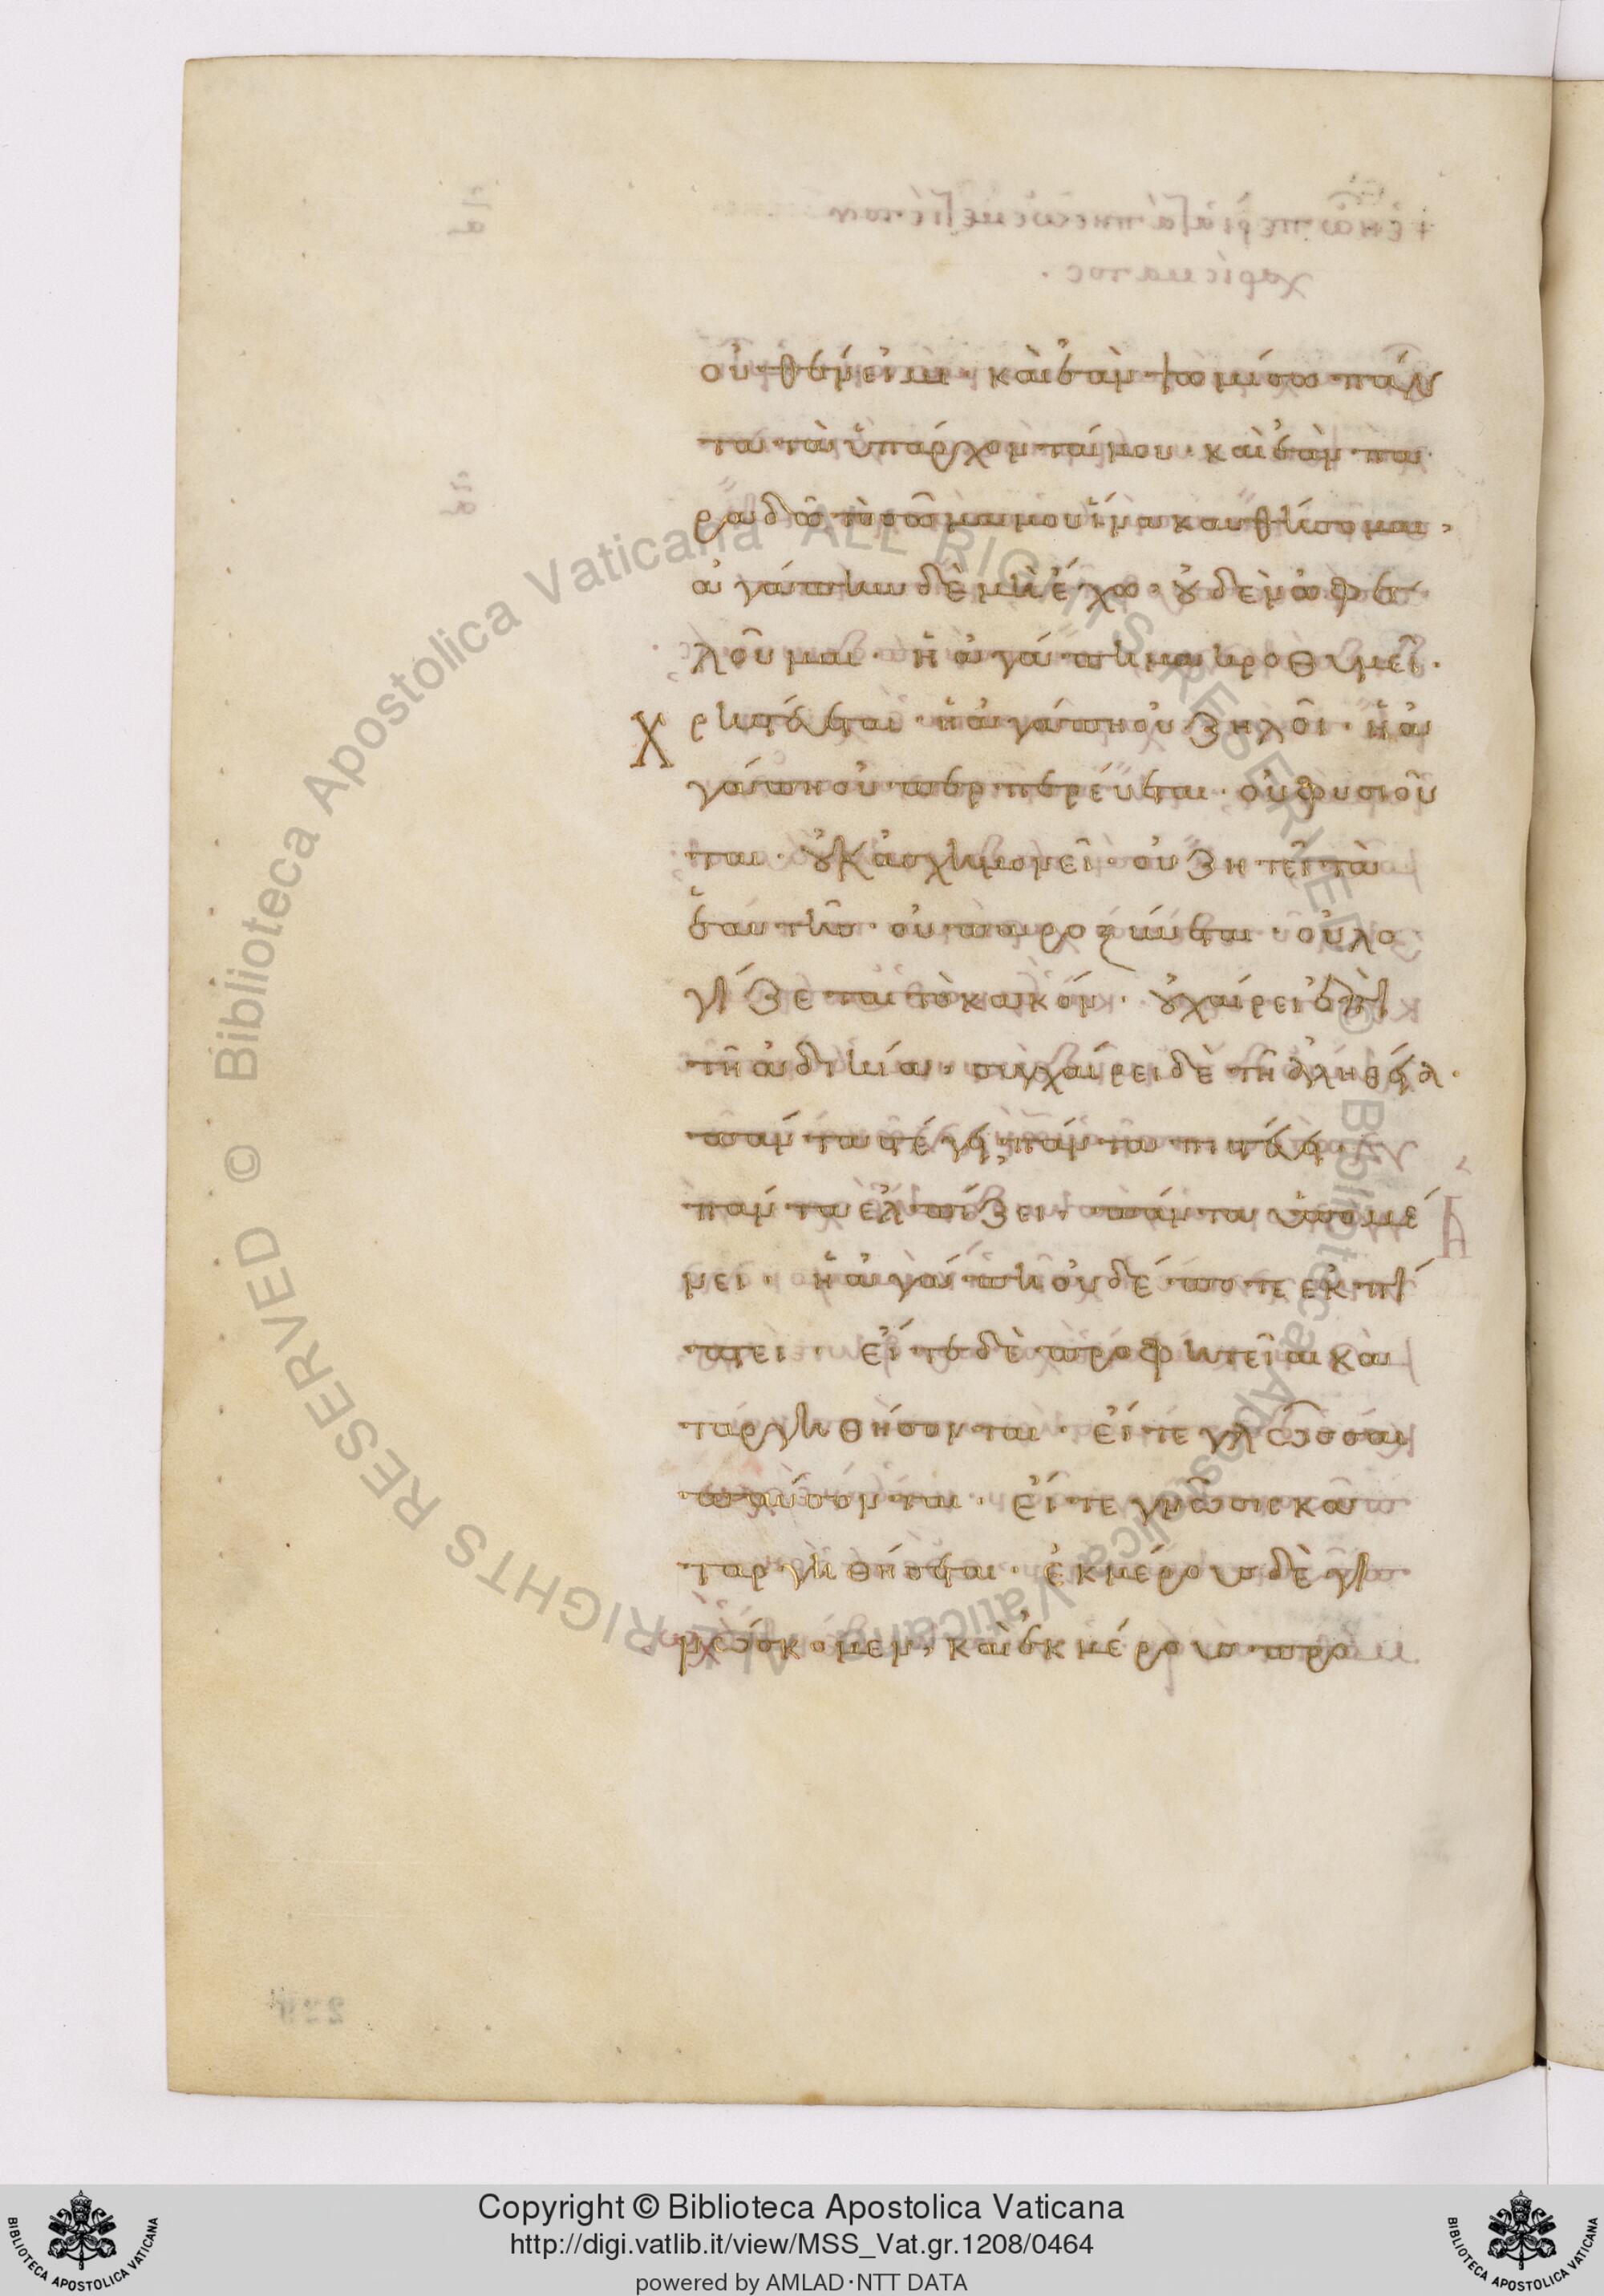 οὐθέν εἰμι· καὶ ἐὰν ψωμίσω πάν
τα τὰ ὑπάρχοντά μου· καὶ ἐὰν πα
ραδῶ τὸ σῶμα μου ἵνα καυθήσομαι,
ἀγάπην δὲ μὴ ἔχω· οὐδὲν ὠφε
λοῦμαι· ἡ ἀγάπη μακροθυμεῖ·
Χρηστεύεται· ἡ ἀγάπη οὐ ζηλοῖ· ἡ ἀ
γάπη οὐ περπερεύεται· οὐ φυσιοῦ
ται· οὐκ ἀσχημονεῖ· οὐ ζητεῖ τὰ
ἑαυτῆς· οὐ παροξύνεται· οὐ λο
γίζεται τὸ κακόν· οὐ χαίρει ἐπὶ
τῇ ἀδικίᾳ· συγχαίρει δὲ τῇ ἀληθείᾳ·
πάντα στέγει, πάντα πιστεύει·
πάντα ἐλπίζει· πάντα ὑπομέ
νει· ἡ ἀγάπη οὐδέποτε ἐκπί
πτει· εἴτε δὲ προφητεῖαι κα
ταργηθήσονται· εἴτε γλῶσσαι
παύσονται· εἴτε γνῶσις κα
ταργηθήσεται· ἐκ μέρους δὲ γι
νώσκομεν, καὶ ἐκ μέρους προ
Copyright © Biblioteca Apostolica Vaticana
http://digi.vatlib.it/view/MSS_Vat.gr.1208/0464
powered by AMLAD·NTT DATA
BIBLIOTECA APOSTOLICA VATICANA
BIBLIOTECA APOSTOLICA VATICANA
© Biblioteca Apostolica Vaticana ALL RIGHTS RESERVED
© Biblioteca Apostolica Vaticana ALL RIGHTS RESERVED